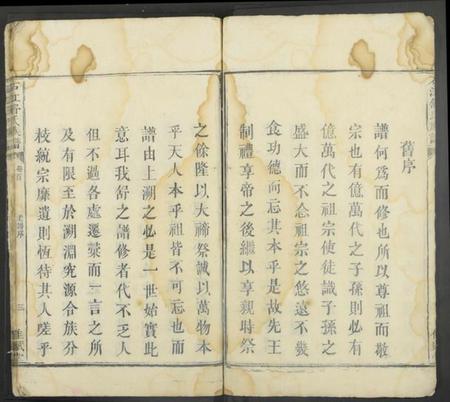 舊序
譜何為而修也所以尊祖而敬
宗也有億萬代之子孫則必有
億萬代之祖宗使徒識子孫之
盛大而不念祖宗之悠遠不幾
食功德向忘其本乎是故先王
制禮享帝之後繼以享親時祭
之餘隆以大禘祭誠以萬物本
乎天人本乎祖皆不可忘也而
譜由上溯之必是一世始實此
意耳我舒之譜修者代不乏人
但不過各處遷葉而言之所
及有限至於溯淵究源合族分
枝統宗靡遺則恆待其人嗟乎
卷首